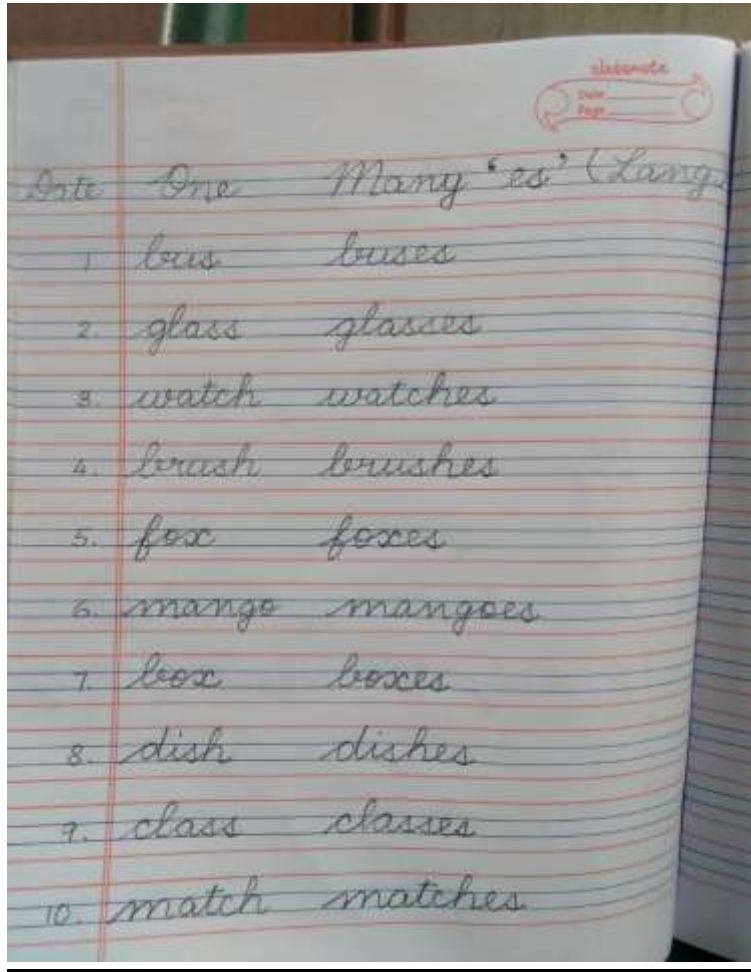 classmate
Date
Page
Date One Many 'es' (Lang
1 bus buses
2. glass glasses
3. watch watches
4. brush brushes
5. fox foxes
6. mango mangoes
7. box boxes
8. dish dishes
9. class classes
10. match matches